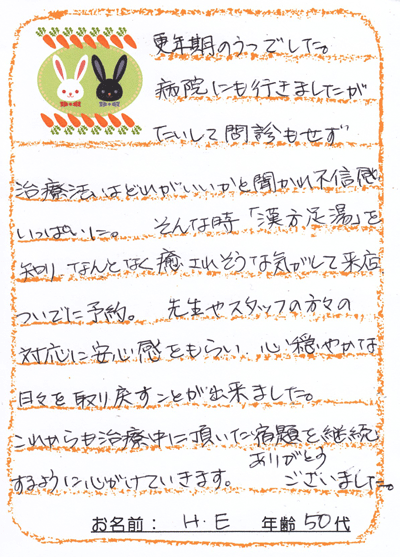 更年期のうつでした。
病院にも行きましたが
たいして問診もせず
治療法はどれがいいかと聞かれ不信感
いっぱいに。 そんな時「漢方足湯」を
知り、なんとなく癒されそうな気がして来店
ついでに予約。 先生やスタッフの方々の
対応に安心感をもらい 心穏やかな
日々を取り戻すことが出来ました。
これからも治療中に頂いた宿題を継続
するように心がけていきます。 ありがとう
ございました。
お名前： H.E 年齢 50代